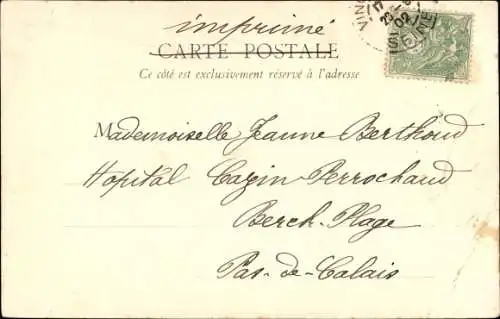 imprimé
CARTE POSTALE
Ce côté est exclusivement réservé à l'adresse
Mademoiselle Jeanne Berthoud
Hopital Cazin Perrochaud
Berck-Plage
Pas-de-Calais